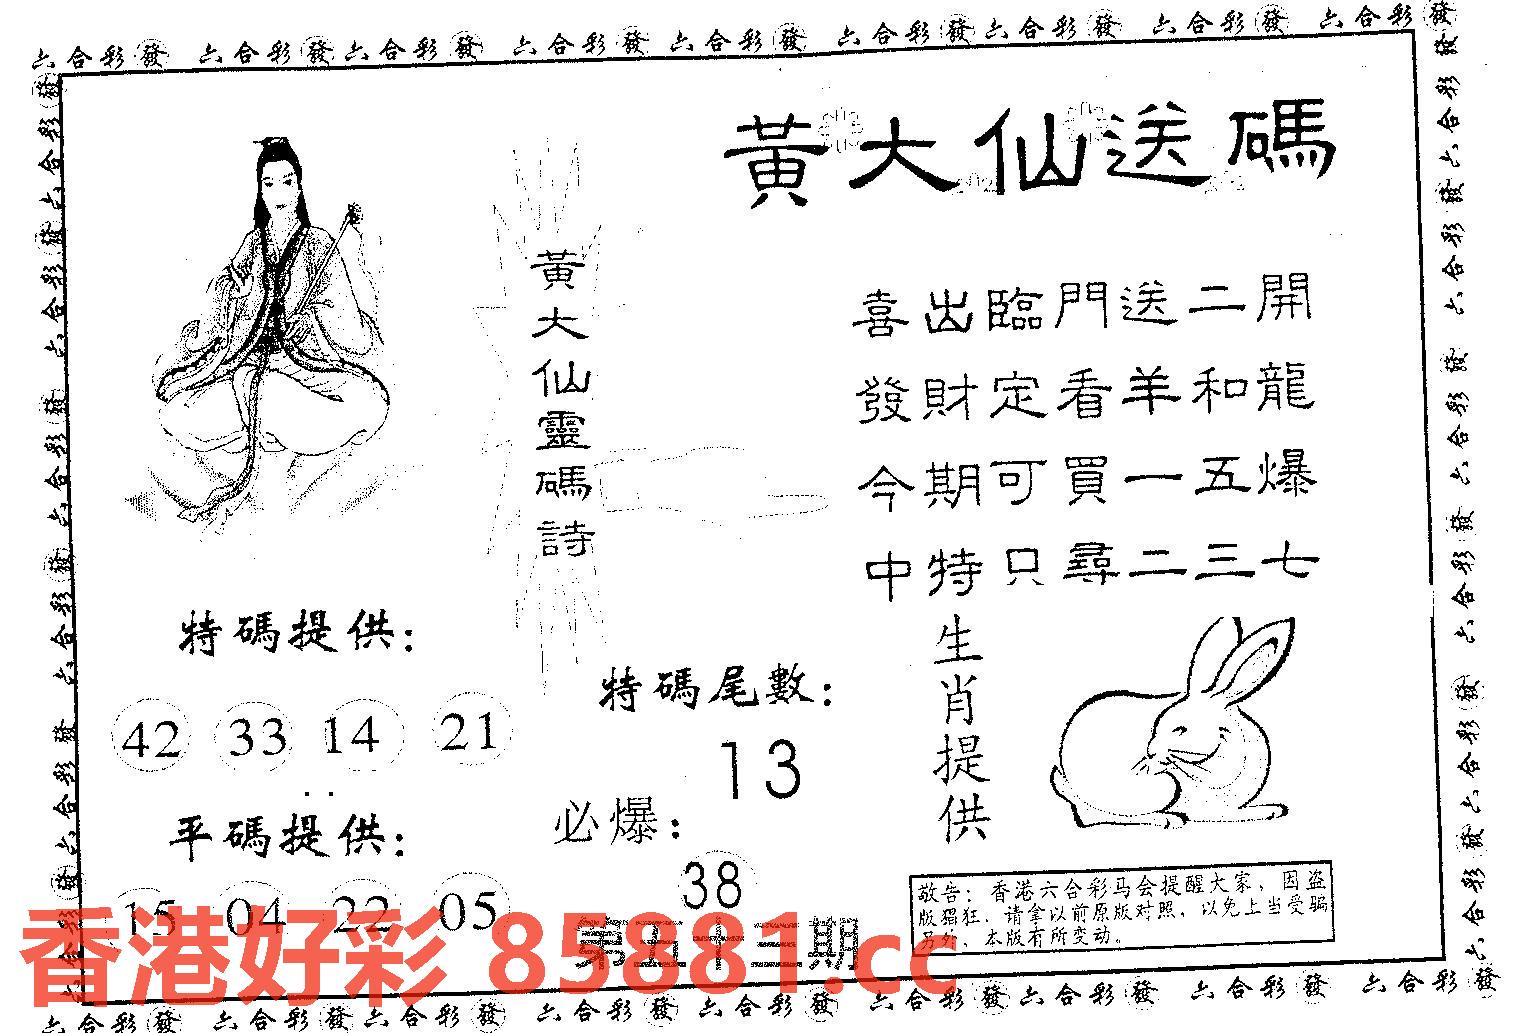 六合彩發 六合彩發 六合彩發 六合彩發 六合彩發 六合彩發 六合彩發 六合彩發 六合彩發
黃大仙送碼
黃大仙靈碼詩
喜出臨門送二開
發財定看羊和龍
今期可買一五爆
中特只尋二三七
特碼提供：
42 33 14 21
平碼提供：
15 04 22 05
特碼尾數：
13
必爆：
38
第五十三期
生肖提供
敬告：香港六合彩马会提醒大家，因盗
版猖狂，请拿以前原版对照，以免上当受骗
另外，本版有所变动。
香港好彩 85881.cc
六合彩發 六合彩發 六合彩發 六合彩發 六合彩發 六合彩發 六合彩發 六合彩發 六合彩發